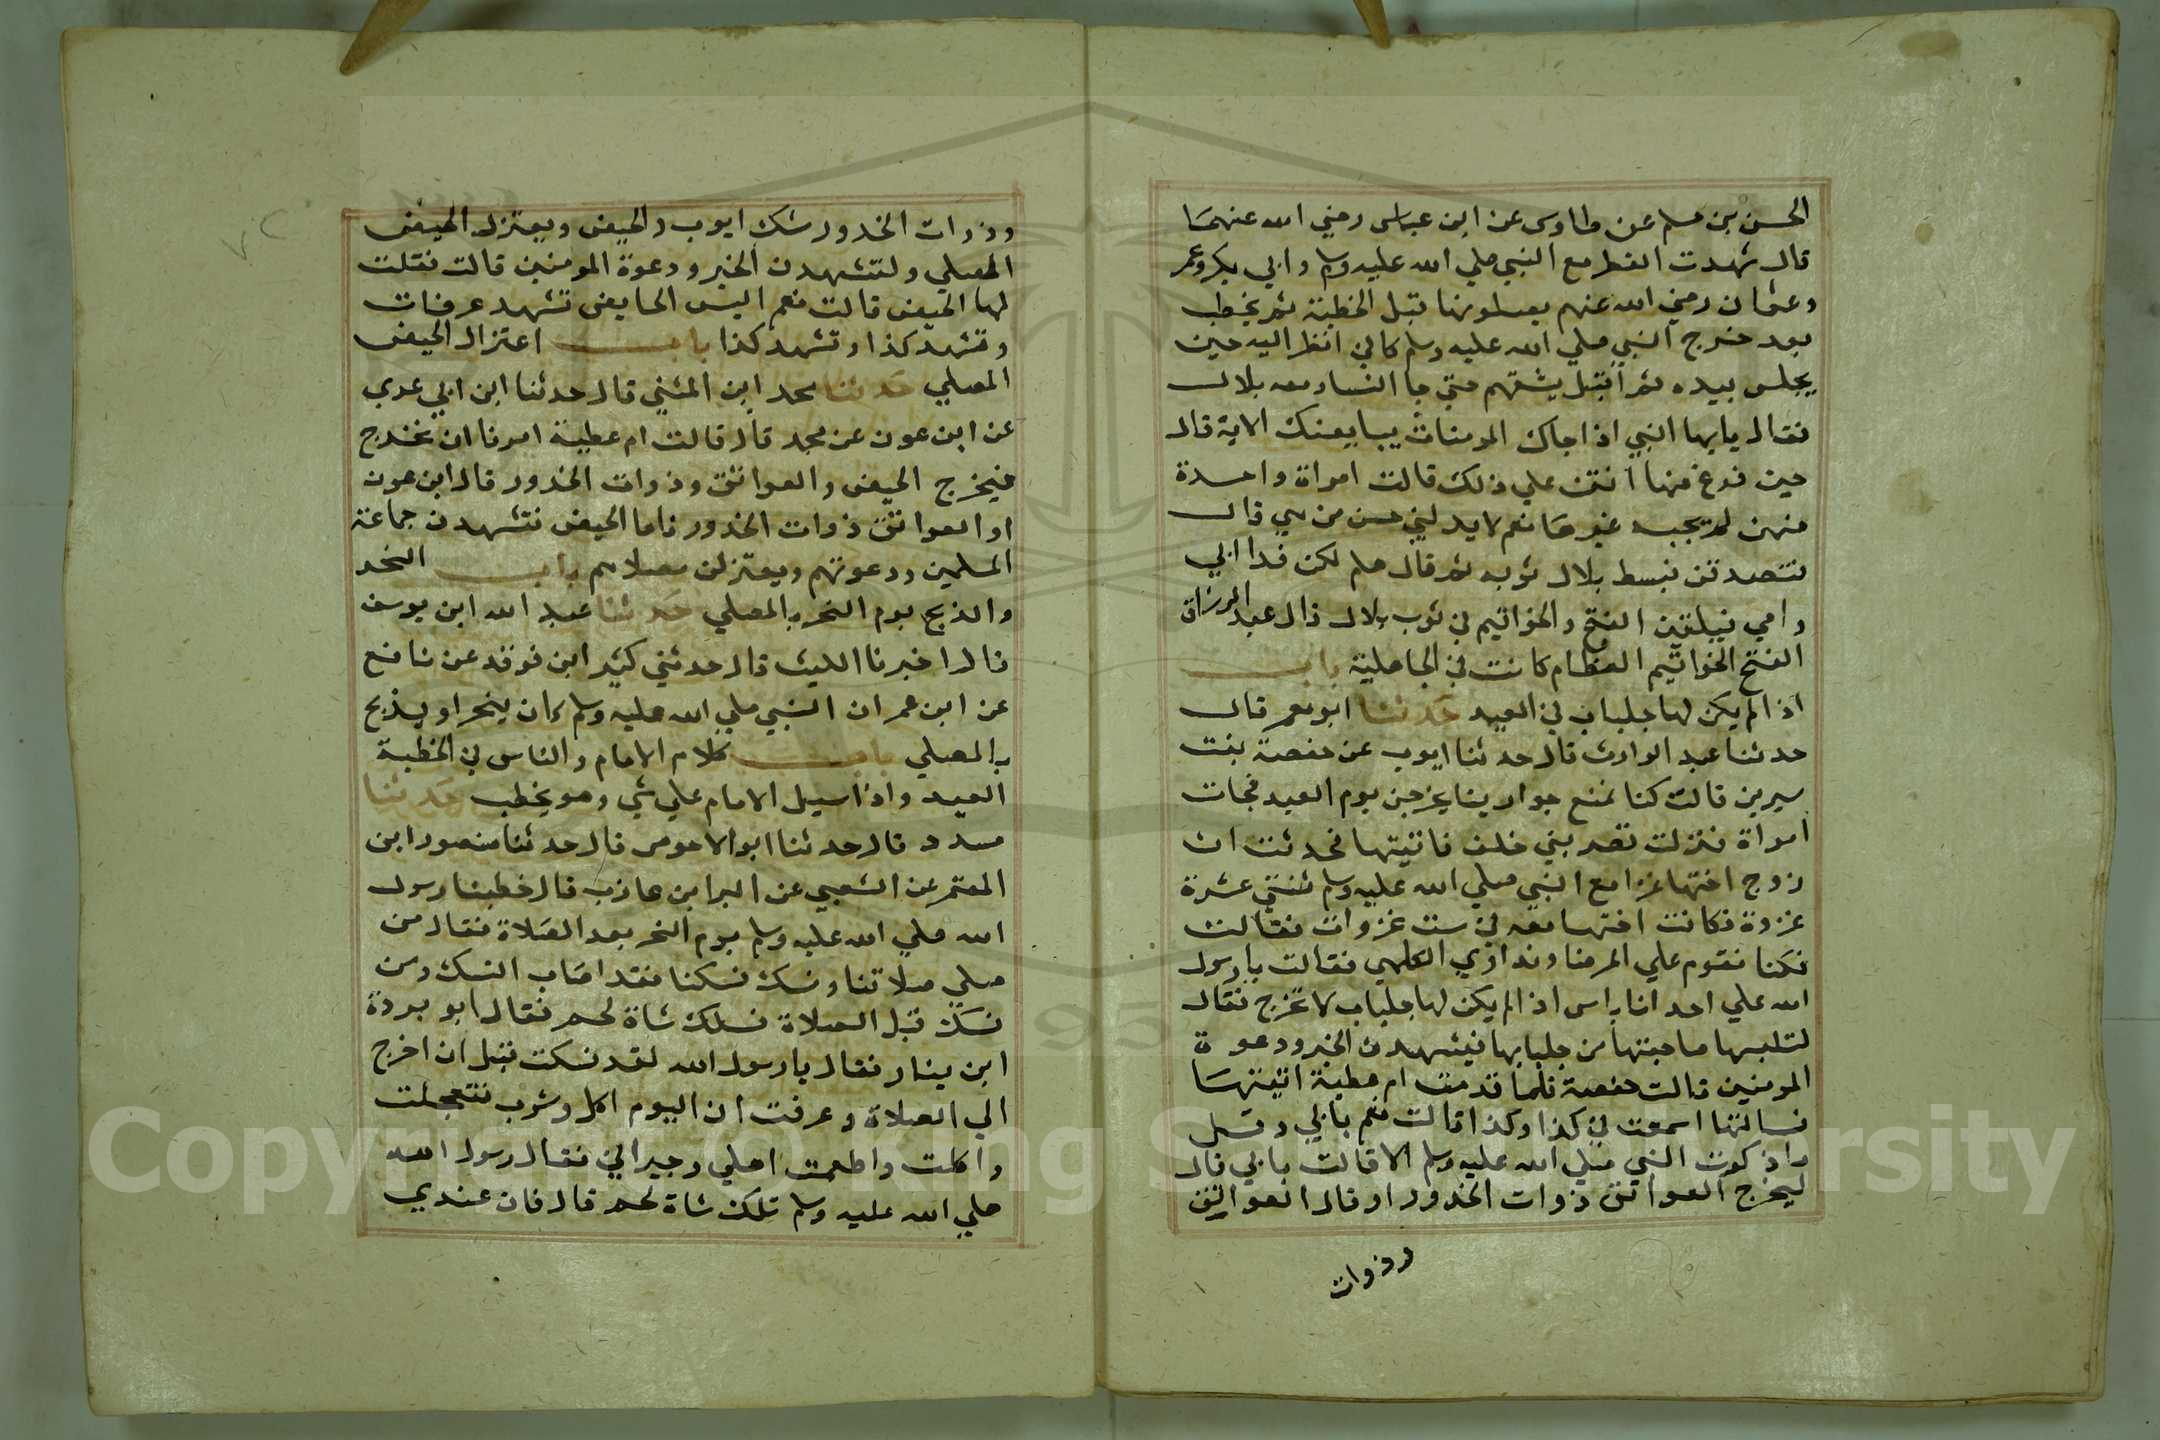 الحسن بن مسلم عن طاوس عن ابن عباس رضي الله عنهما
قال شهدت الفطر مع النبي صلي الله عليه وسلم وابي بكر وعمر
وعثمان رضي الله عنهم يصلونها قبل الخطبة ثم يخطب
بعد خرج النبي صلي الله عليه وسلم كاني انظر اليه حين
يجلس بيده ثم اقبل يشقهم حتي جا النساء معه بلال
فقال يايها النبي اذا جاك المومنات يبايعنك الاية قال
حين فرغ منها انتن علي ذلك قالت امراة واحدة
منهن لم يجبه غيرها نعم لا يدري حسن من هي قال
فتصدقن فبسط بلال ثوبه ثم قال هلم لكن فدا ابي
وامي فيلقين الفتح والخواتيم في ثوب بلال قال عبد الرزاق
الفتح الخواتيم العظام كانت في الجاهلية باب
اذا لم يكن لها جلباب في العيد حدثنا ابو معمر قال
حدثنا عبد الوارث قال حدثنا ايوب عن حفصة بنت
سيرين قالت كنا نمنع جوارينا يخرجن يوم العيد فجات
امراة فنزلت قصر بني خلف فاتيتها فحدثت ان
زوج اختها غزا مع النبي صلي الله عليه وسلم ثنتي عشرة
غزوة فكانت اختها معه في ست غزوات فقالت
فكنا نقوم علي المرضا ونداوي الكلمي فقالت يا رسول
الله علي احدانا باس اذا لم يكن لها جلباب لا تخرج فقال
لتلبسها صاحبتها من جلبابها فيشهدن الخير ودعوة
المومنين قالت حفصة فلما قدمت ام عطية اتيتها
فسالتها اسمعت في كذا وكذا قالت نعم بابي وقل
ما ذكرت النبي صلي الله عليه وسلم الا قالت بابي قال
ليخرج العواتق ذوات الخدور او قال العواتق
وذوات
وذوات الخدور شك ايوب والحيض ويعتزل الحيض
المصلي ولتشهدن الخير ودعوة المومنين قالت فقلت
لها الحيض قالت نعم اليس الحايض تشهد عرفات
وتشهد كذا وتشهد كذا باب اعتزال الحيض
المصلي حدثنا محمد ابن المثني قال حدثنا ابن ابي عدي
عن ابن عون عن محمد قال قالت ام عطية امرنا ان نخرج
فيخرج الحيض والعواتق وذوات الخدور قال ابن عون
او العواتق ذوات الخدور فاما الحيض فتشهدن جماعة
المسلمين ودعوتهم ويعتزلن مصلاهم باب النحر
والذبح يوم النحر بالمصلي حدثنا عبد الله ابن يوسف
قال اخبرنا الليث قال حدثني كثير ابن فرقد عن نافع
عن ابن عمر ان النبي صلي الله عليه وسلم كان ينحر او يذبح
بالمصلي باب كلام الامام والناس في الخطبة
العيد واذا سيل الامام علي شي وهو يخطب حدثنا
مسدد قال حدثنا ابو الاحوص قال حدثنا منصور ابن
المعتمر عن الشعبي عن البرا بن عازب قال خطبنا رسول
الله صلي الله عليه وسلم يوم النحر بعد الصلاة فقال من
صلي صلاتنا ونسك نسكنا فقد اصاب النسك ومن
نسك قبل الصلاة فتلك شاة لحم فقال ابو بردة
ابن ينار فقال يا رسول الله لقد نسكت قبل ان اخرج
الي الصلاة وعرفت ان اليوم اكل وشرب فتعجلت
واكلت واطعمت اهلي وجيراني فقال رسول الله
صلي الله عليه وسلم تلك شاة لحم قال فان عندي